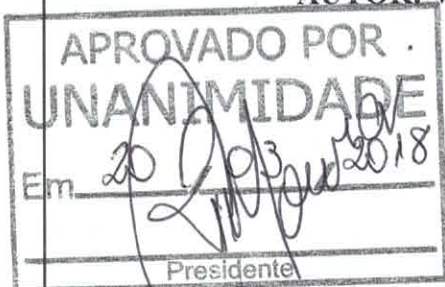 APROVADO POR
UNANIMIDADE
Em 20 03 2018
Presidente